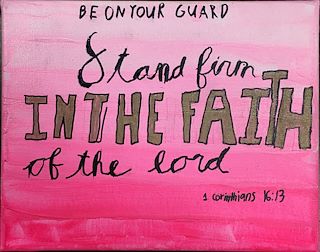 BE ON YOUR GUARD
Stand firm
IN THE FAITH
of the lord
1 corinthians 16:13